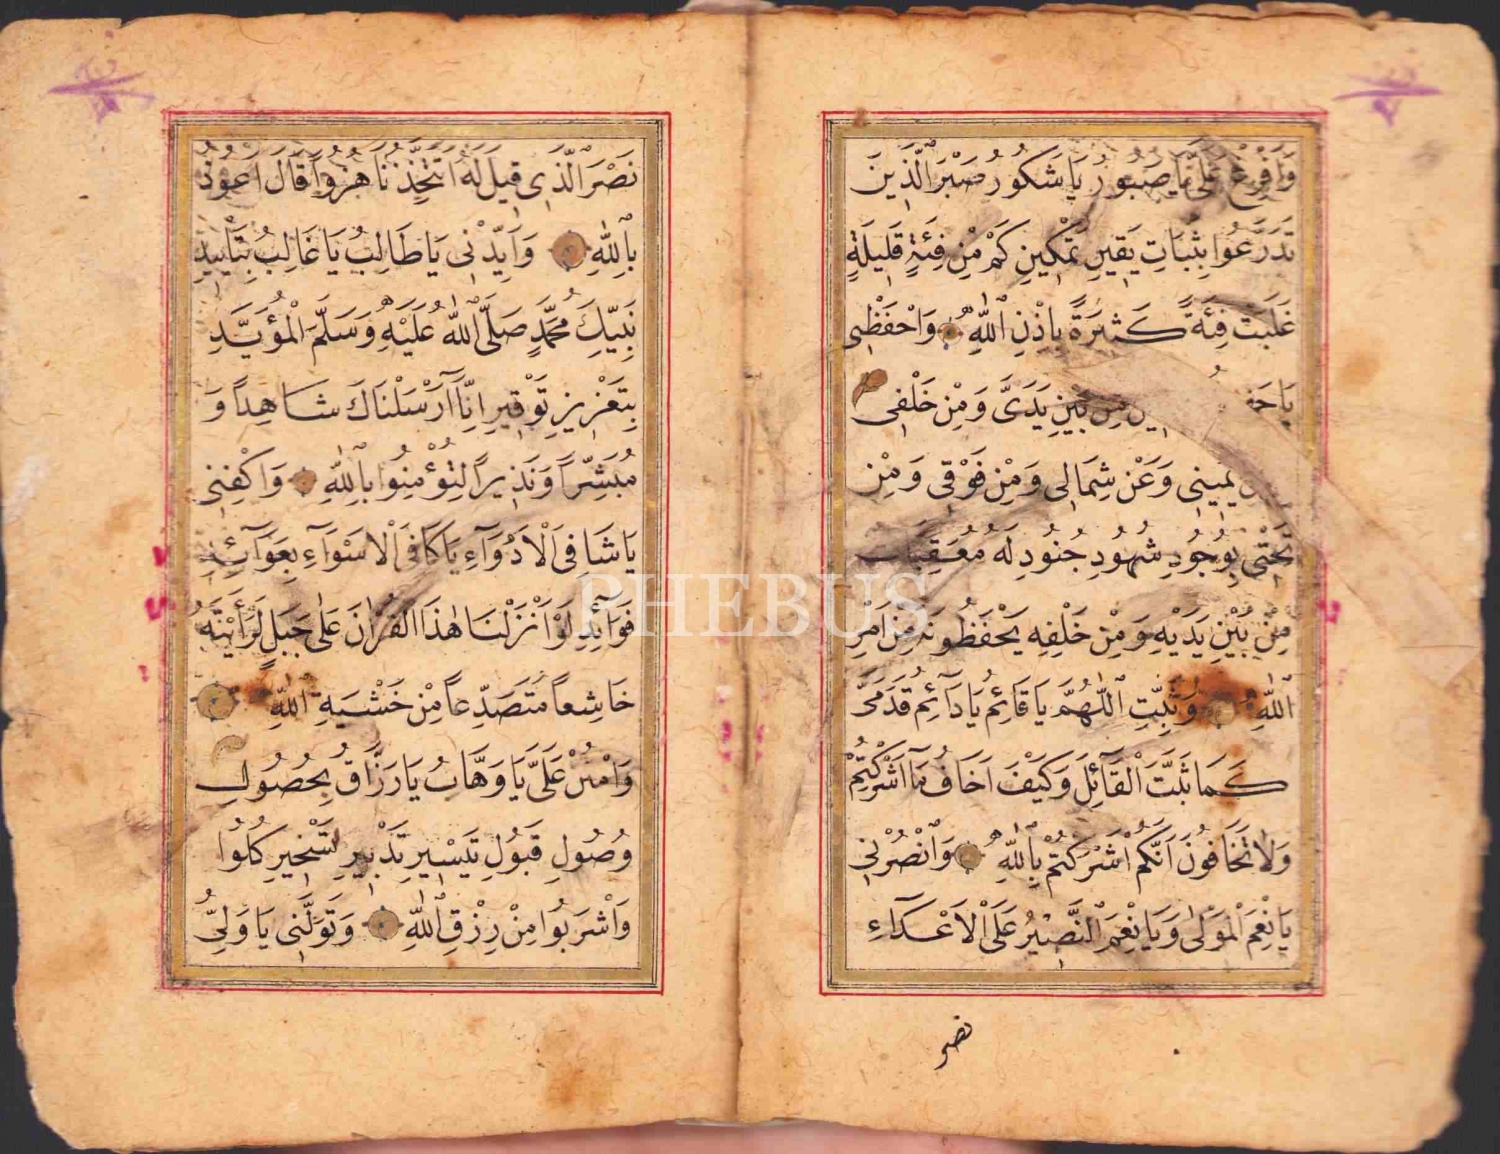 وَاَفْرِغْ عَلَيَّ يَا صَبُورُ يَا شَكُورُ صَبْرَ الَّذِينَ
تَدَرَّعُوا بِثَبَاتِ يَقِينِ تَمْكِينِ كَمْ مِنْ فِئَةٍ قَلِيلَةٍ
غَلَبَتْ فِئَةً كَثِيرَةً بِاِذْنِ اللّٰهِ وَاحْفَظْنِي
يَا حَفِ مِنْ بَيْنِ يَدَيَّ وَمِنْ خَلْفِي
يَمِينِي وَعَنْ شِمَالِي وَمِنْ فَوْقِي وَمِنْ
تَحْتِي بِوُجُودِ شُهُودِ جُنُودِ لَهُ مُعَقِّبَات
مِنْ بَيْنِ يَدَيْهِ وَمِنْ خَلْفِهِ يَحْفَظُونَهُ مِنْ اَمْرِ
اللّٰهِ وَثَبِّتِ اللّٰهُمَّ يَا قَائِمُ يَا دَآئِمُ قَدَمَيَّ
كَمَا ثَبَّتَّ الْقَآئِلَ وَكَيْفَ اَخَافُ مَا اَشْرَكْتُمْ
وَلَا تَخَافُونَ اَنَّكُمْ اَشْرَكْتُمْ بِاللّٰهِ وَانْصُرْنِي
يَا نِعْمَ الْمَوْلٰى وَيَا نِعْمَ النَّصِيرُ عَلَى الْاَعْدَآءِ
نصر
نَصْرَ الَّذِي قِيلَ لَهُ اَتَتَّخِذُنَا هُزُوًا قَالَ اَعُوذُ
بِاللّٰهِ وَاَيِّدْنِي يَا طَالِبُ يَا غَالِبُ بِتَأْيِيدِ
نَبِيِّكَ مُحَمَّدٍ صَلَّى اللّٰهُ عَلَيْهِ وَسَلَّمَ الْمُؤَيَّدِ
بِتَعْزِيزِ تَوْقِيرِ اِنَّا اَرْسَلْنَاكَ شَاهِدًا وَ
مُبَشِّرًا وَنَذِيرًا لِتُؤْمِنُوا بِاللّٰهِ وَاكْفِنِي
يَا شَافِيَ الْاَدْوَآءِ يَا كَافِيَ الْاَسْوَآءِ بِعَوَآئِدِ
فَوَآئِدِ لَوْ اَنْزَلْنَا هٰذَا الْقُرْاٰنَ عَلٰى جَبَلٍ لَرَاَيْتَهُ
خَاشِعًا مُتَصَدِّعًا مِنْ خَشْيَةِ اللّٰهِ
وَامْنُنْ عَلَيَّ يَا وَهَّابُ يَا رَزَّاقُ بِحُصُولِ
وُصُولِ قَبُولِ تَيْسِيرِ تَدْبِيرِ تَسْخِيرِ كُلُوا
وَاشْرَبُوا مِنْ رِزْقِ اللّٰهِ وَتَوَلَّنِي يَا وَلِيُّ
PHEBUS